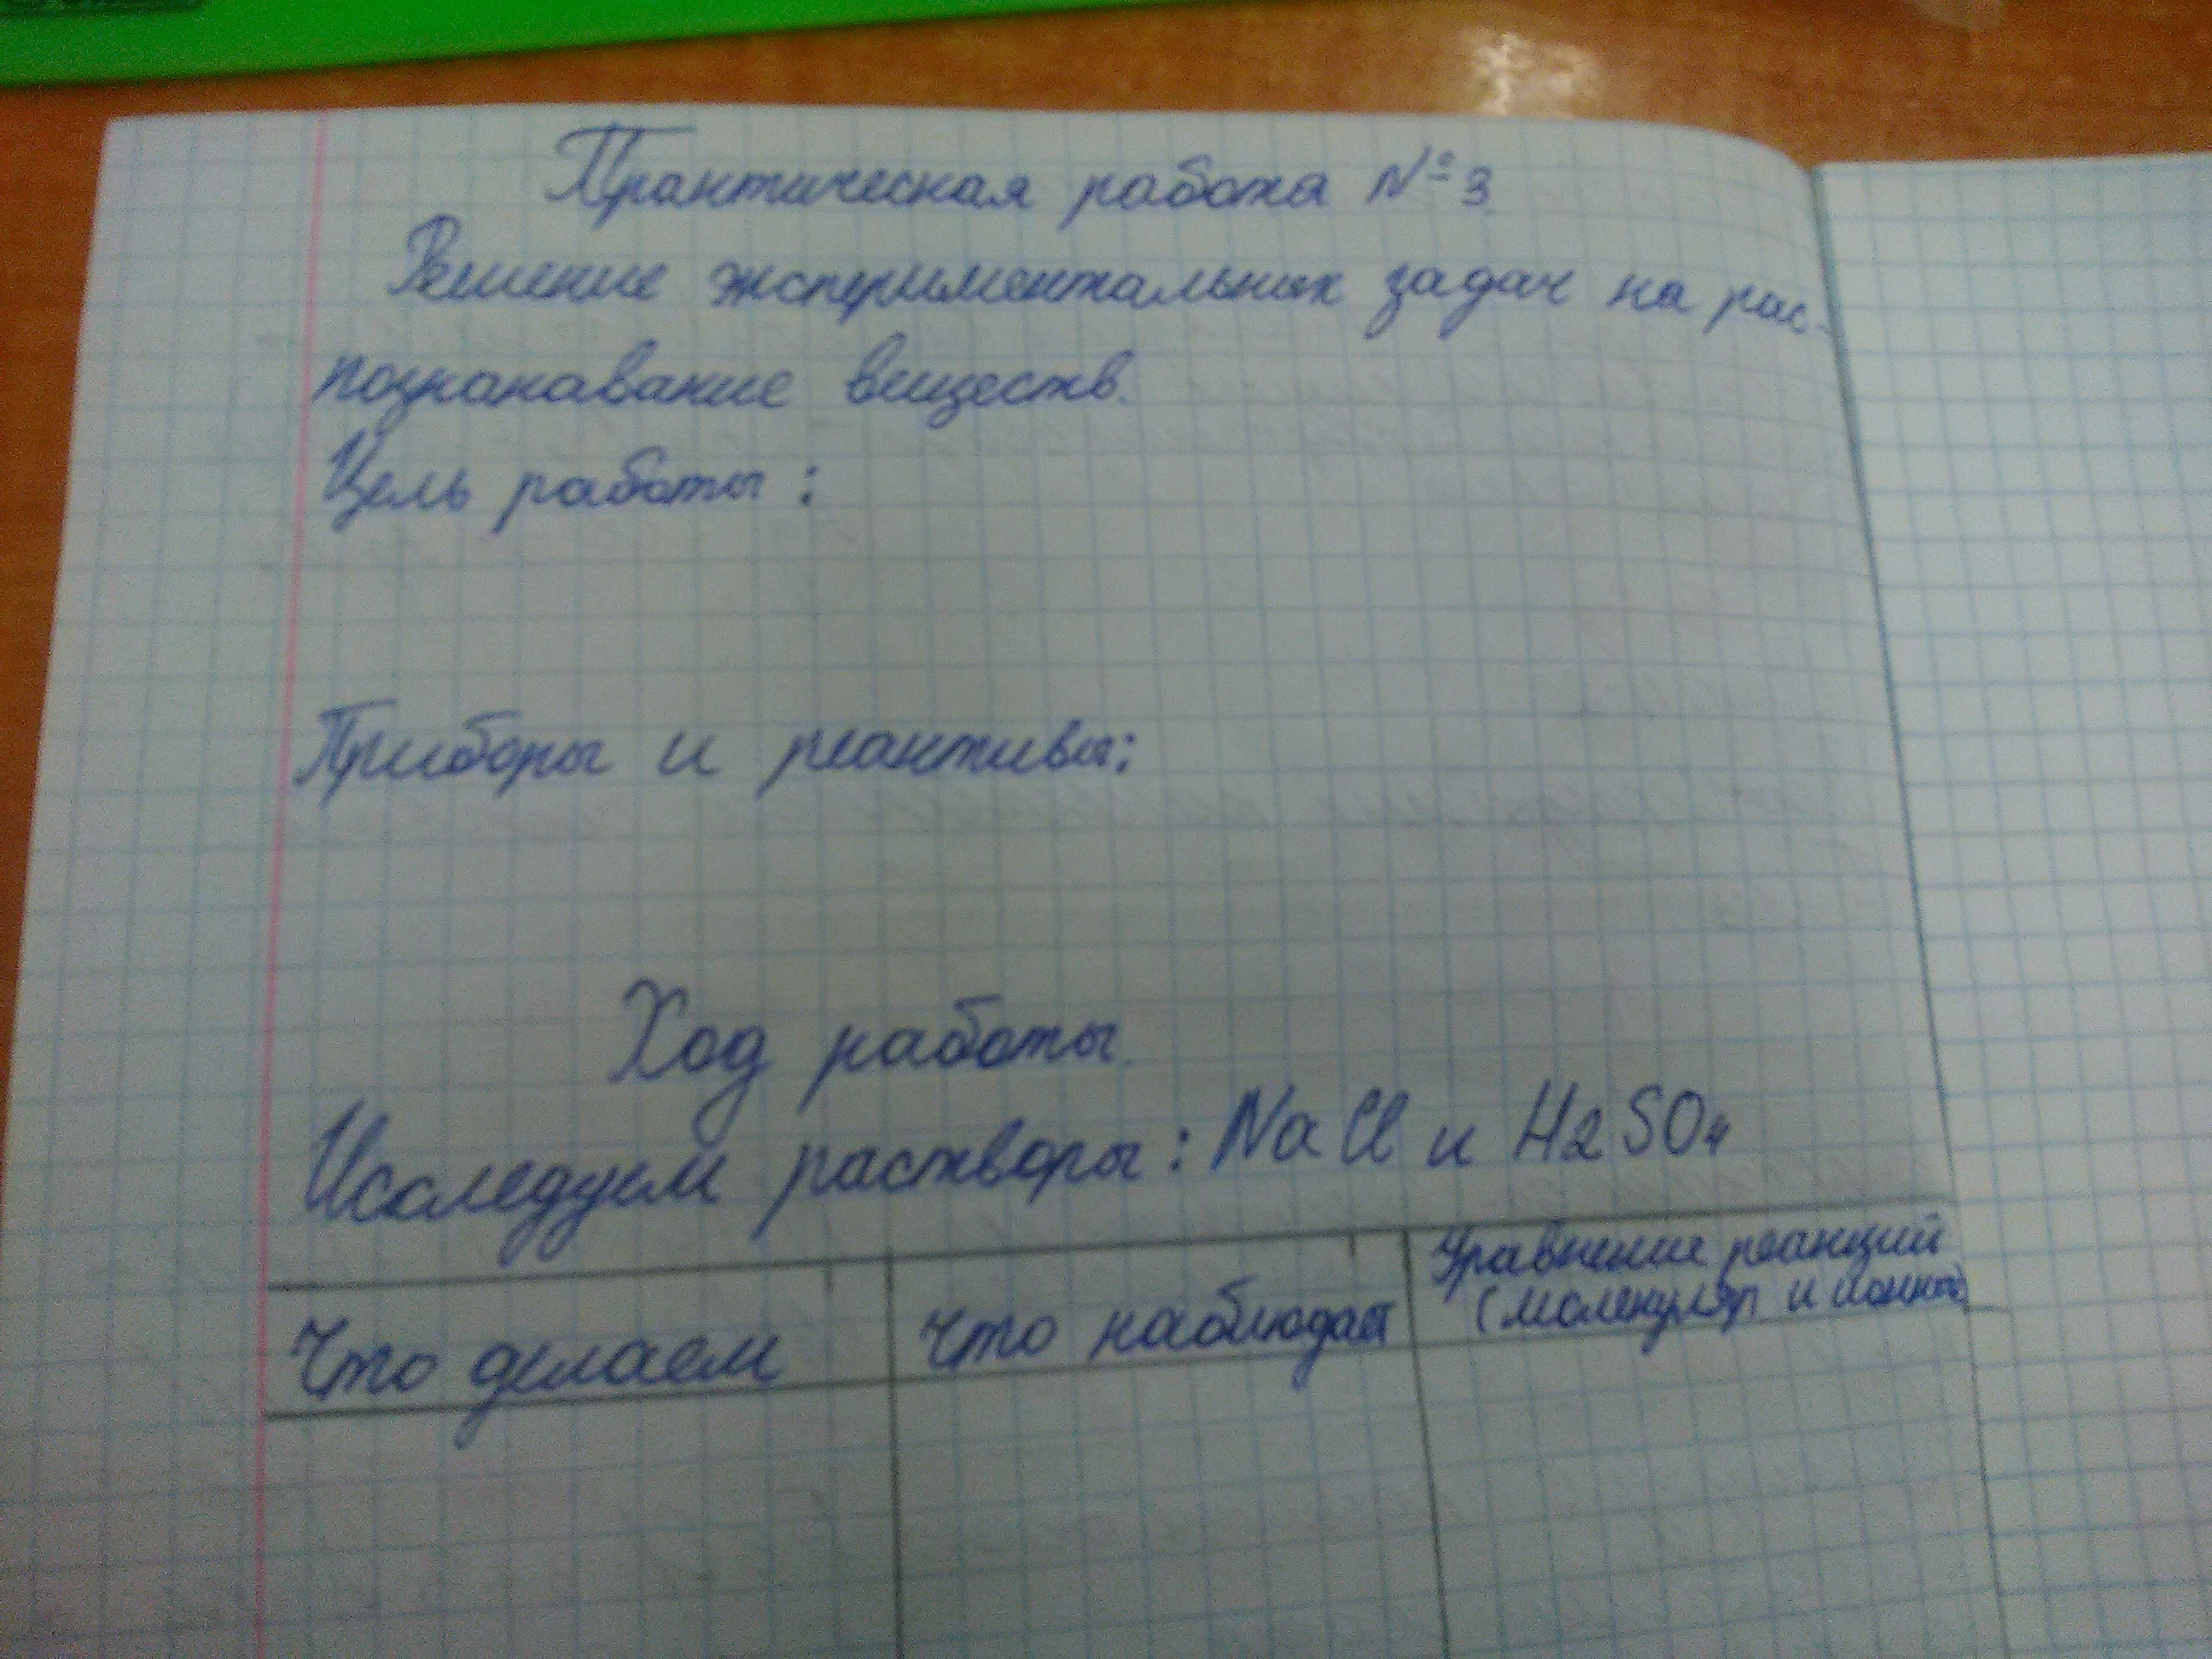 Практическая работа № 3
Решение экспериментальных задач на рас-
познанавание веществ.
Цель работы:
Приборы и реактивы:
Ход работы.
Исследуем растворы: NaCl и H2SO4
Что делаем
Что наблюдает
Уравнение реакций
(молекуляр и ионное)